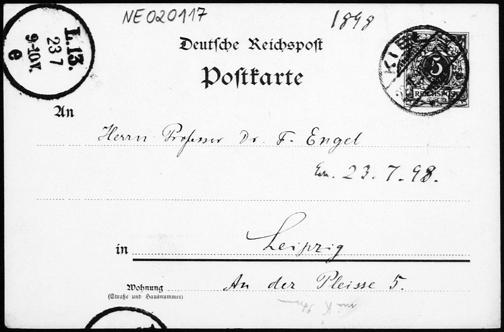 NE020117
1898
L. 13.
23 7
9-10V.
e
KIEL
5
Deutsche Reichspost
Postkarte
An
Herrn Professor Dr. F. Engel
23.7.98.
in Leipzig
Wohnung An der Pleisse 5.
(Straße und Hausnummer)